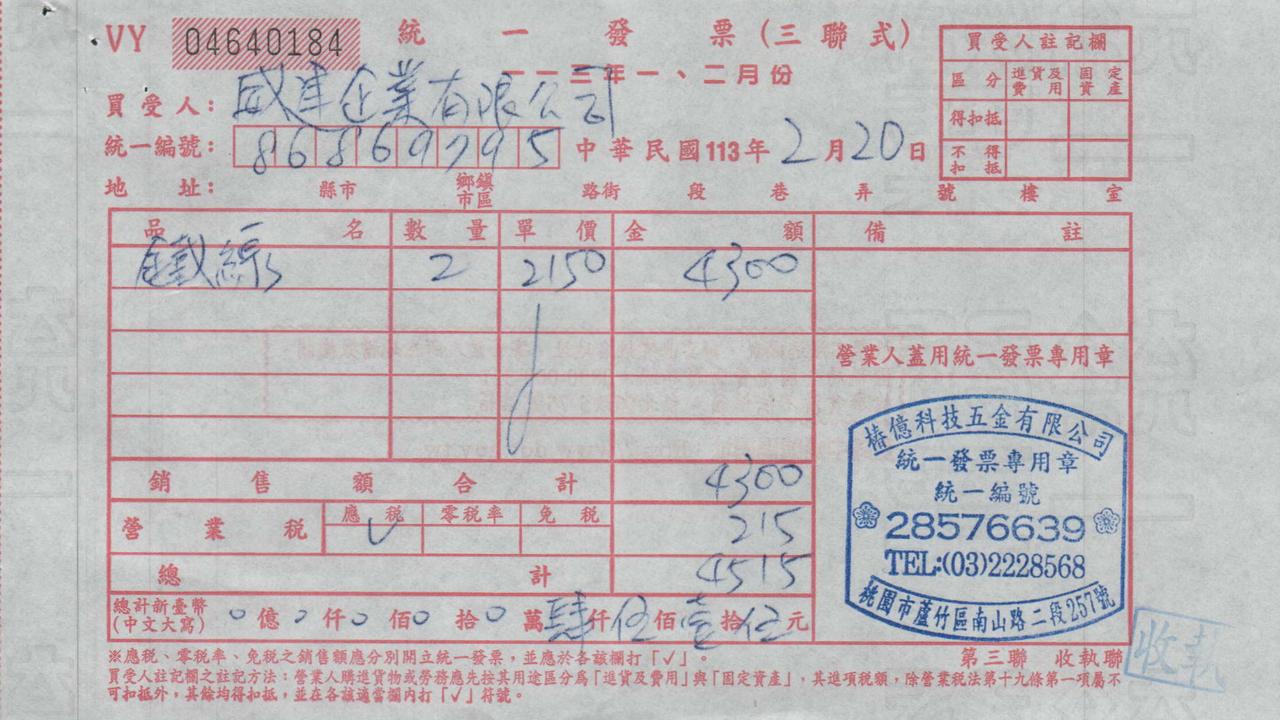 VY 04640184 統一發票(三聯式)
一一三年一、二月份
買受人註記欄
區分 進貨及費用 固定資產
得扣抵
不得扣抵
買受人: 威車企業有限公司
統一編號: 86869795 中華民國113年2月20日
地址: 縣市 鄉鎮市區 路街 段 巷 弄 號 樓 室
品名 數量 單價 金額 備註
鐵線 2 2150 4300
營業人蓋用統一發票專用章
銷售額合計 4300
營業稅 應稅 零稅率 免稅 215
V
總計 4515
總計新臺幣(中文大寫) 0億0仟0佰0拾0萬肆仟伍佰壹拾伍元
椿億科技五金有限公司
統一發票專用章
統一編號
28576639
TEL:(03)2228568
桃園市蘆竹區南山路二段257號
※應稅、零稅率、免稅之銷售額應分別開立統一發票,並應於各該欄打「✓」。
第三聯 收執聯
收執
買受人註記欄之註記方法:營業人購進貨物或勞務應先按其用途區分為「進貨及費用」與「固定資產」,其進項稅額,除營業稅法第十九條第一項屬不
可扣抵外,其餘均得扣抵,並在各該適當欄內打「✓」符號。